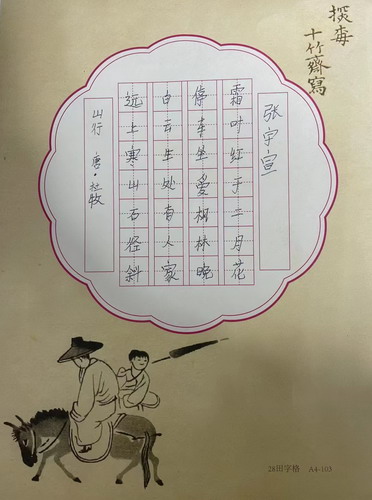 十竹齋寫
山行 唐·杜牧
远上寒山石径斜
白云生处有人家
停车坐愛枫林晚
霜叶红于二月花
张宇宣
28田字格 A4-103